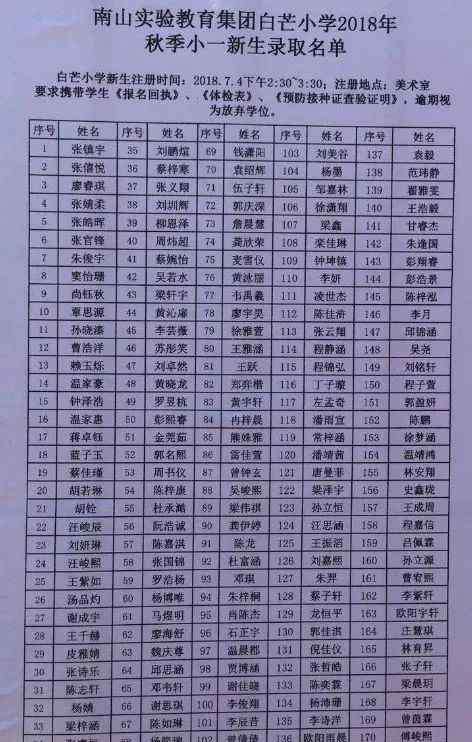 南山实验教育集团白芒小学2018年
秋季小一新生录取名单
白芒小学新生注册时间：2018.7.4下午2:30~3:30；注册地点：美术室
要求携带学生《报名回执》、《体检表》、《预防接种证查验证明》，逾期视
为放弃学位。
序号 姓名 序号 姓名 序号 姓名 序号 姓名 序号 姓名
1 张镇宇 35 刘鹏煊 69 钱潇阳 103 刘美谷 137 袁毅
2 张僖悦 36 蔡梓寒 70 袁绍辉 104 杨墨 138 范玮静
3 廖睿琪 37 张义翔 71 伍子轩 105 邹嘉林 139 翟雅雯
4 张婧柔 38 刘圳辉 72 郭庆深 106 徐潇翔 140 王浩毅
5 张皓晖 39 柳恩泽 73 詹晨慧 107 梁鑫 141 甘睿杰
6 张官锋 40 周炜超 74 龚欣荣 108 栾佳琳 142 朱逢国
7 朱俊宇 41 蔡婉怡 75 麦雪仪 109 钟坤镇 143 彭翔睿
8 窦怡珊 42 吴若水 76 黄泳丽 110 李妍 144 彭浩景
9 尚钰秋 43 梁轩宇 77 韦禹羲 111 凌世杰 145 陈梓泓
10 覃思源 44 黄沁雍 78 廖宇炅 112 陈佳浒 146 李月
11 孙晓潞 45 李芸薇 79 徐雅萱 113 张云翔 147 邱锦涵
12 曹浩洋 46 苏彤笑 80 王雅涵 114 程静涵 148 吴尧
13 赖玉烁 47 刘卓然 81 王跃 115 程锦弘 149 刘铭轩
14 温家豪 48 黄晓龙 82 郑弈楷 116 丁子璇 150 程子萱
15 钟泽浩 49 罗昱杭 83 黄宇轩 117 左孟奇 151 郭盈妍
16 温家惠 50 彭熙睿 84 冉梓晨 118 潘雨宣 152 陈鹏
17 蒋卓钰 51 金莞茹 85 熊姝雅 119 常梓涵 153 徐梦涵
18 蓝子玉 52 郭名熙 86 富佳萱 120 潘靖茜 154 温靖鸿
19 蔡佳瑾 53 周书仪 87 曾钟玄 121 唐曼菲 155 林安翔
20 胡若琳 54 陈梓康 88 吴峻熙 122 梁泽宇 156 史鑫珑
21 胡铨 55 杜承澔 89 梁伟祺 123 孙立恒 157 王成周
22 汪峻辰 56 阮浩诚 90 龚伊婷 124 汪思涵 158 程嘉信
23 刘妍琳 57 陈嘉淇 91 陈龙 125 王振滔 159 吕佩霖
24 汪峻熙 58 张国锦 92 杜富涵 126 刘嘉熙 160 孙立源
25 王紫如 59 罗浩杨 93 邓琪 127 朱羿 161 曹宥熙
26 汤品灼 60 杨博唯 94 朱梓桐 128 蔡子轩 162 李紫轩
27 谢成宇 61 马煜明 95 肖陈杰 129 龙恒平 163 欧阳宇轩
28 王千赫 62 廖海舒 96 石正宇 130 郭佳淇 164 庄慧琪
29 皮雅婧 63 魏庆尊 97 温晨郡 131 倪佳仪 165 林育昇
30 张诗乐 64 邱思涵 98 贾博涵 132 张哲皓 166 张子轩
31 陈志轩 65 邓韦轩 99 谢佳晓 133 陈奕霖 167 梁晨玥
32 杨婧 66 谢思琪 100 李俊翔 134 杨沛珊 168 李宇轩
33 梁梓涵 67 陈如琳 101 李辰昔 135 李诗洋 169 曾茵霖
68 102 136 欧阳雨晨 170 傅峻熙